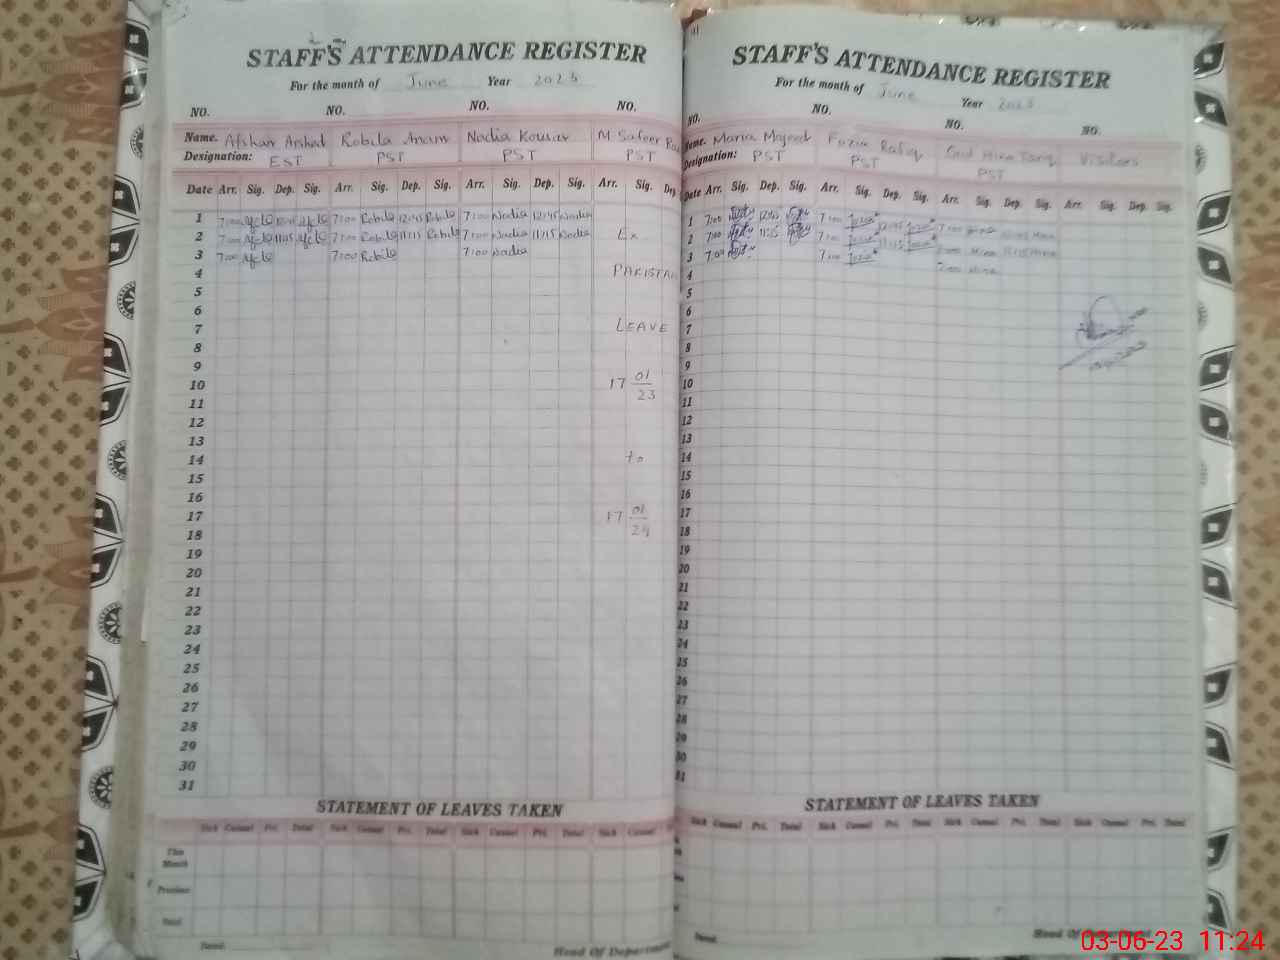 STAFF'S ATTENDANCE REGISTER
For the month of June Year 2023
NO. NO. NO. NO.
Name. Afshan Arshad Robila Anam Nadia Kousar M Safeer
Designation: EST PST PST PST
Date Arr. Sig. Dep. Sig. Arr. Sig. Dep. Sig. Arr. Sig. Dep. Sig. Arr. Sig. Dep
1 7:00 12:45 7:00 Robila 12:45 Robila 7:00 Nadia 12:45 Nadia
2 7:00 11:15 7:00 Robila 11:15 Robila 7:00 Nadia 11:15 Nadia Ex
3 7:00 7:00 Robila 7:00 Nadia
4 PAKISTAN
5
6
7 LEAVE
8
9
10 17 01/23
11
12
13
14 to
15
16
17 17 01/24
18
19
20
21
22
23
24
25
26
27
28
29
30
31
STATEMENT OF LEAVES TAKEN
Sick Casual Pri. Total Sick Casual Pri. Total Sick Casual Pri. Total Sick Casual
This Month
Previous
Total
Dated
Head Of Departmen
STAFF'S ATTENDANCE REGISTER
For the month of June Year 2023
NO. NO. NO. NO.
Name. Maria Majeed Fozia Rafiq Hina Tariq Visitors
Designation: PST PST PST
Date Arr. Sig. Dep. Sig. Arr. Sig. Dep. Sig. Arr. Sig. Dep. Sig. Arr. Sig. Dep. Sig.
1 7:00 12:45 7:00 12:45 7:00 Hina
2 7:00 11:15 7:00 11:15 7:00 Hina 11:15 Hina
3 7:00 7:00 7:00 Hina
4
5
6
7
8
9
10
11
12
13
14
15
16
17
18
19
20
21
22
23
24
25
26
27
28
29
30
31
STATEMENT OF LEAVES TAKEN
Sick Casual Pri. Total Sick Casual Pri. Total Sick Casual Pri. Total Sick Casual Pri. Total
Dated
Head Of Depart
03-06-23 11:24